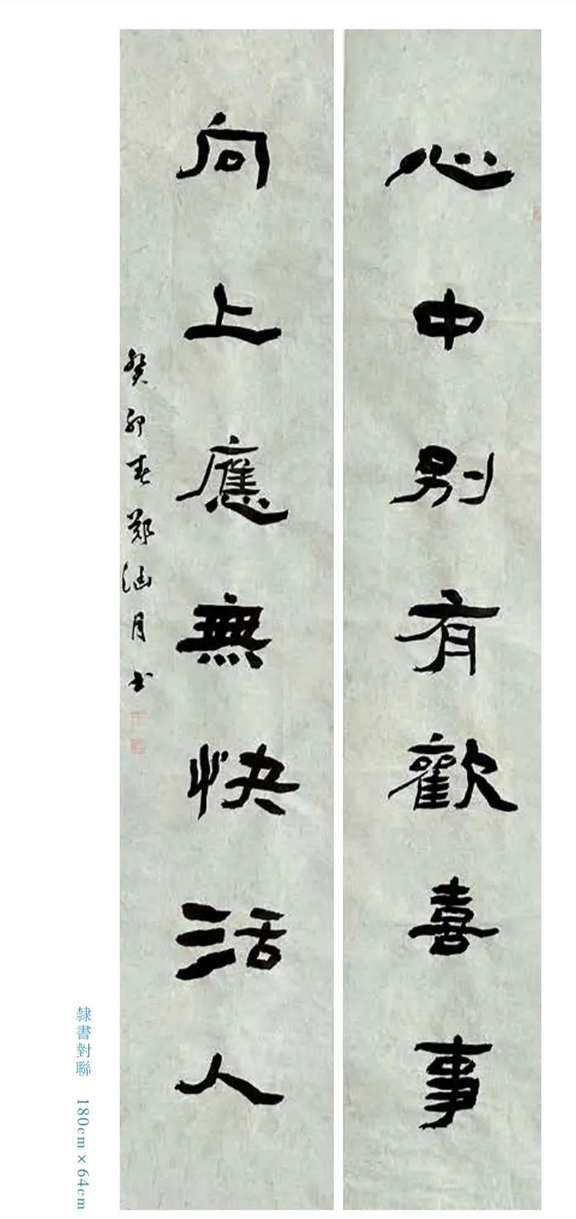 心中别有歡喜事
向上應無快活人
癸卯春鄭涵月书
隸書對聯 180cm×64cm